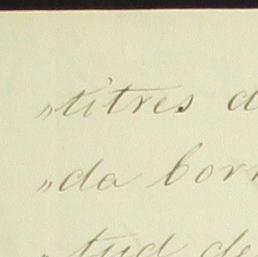 „titres d
„da born
„tud de